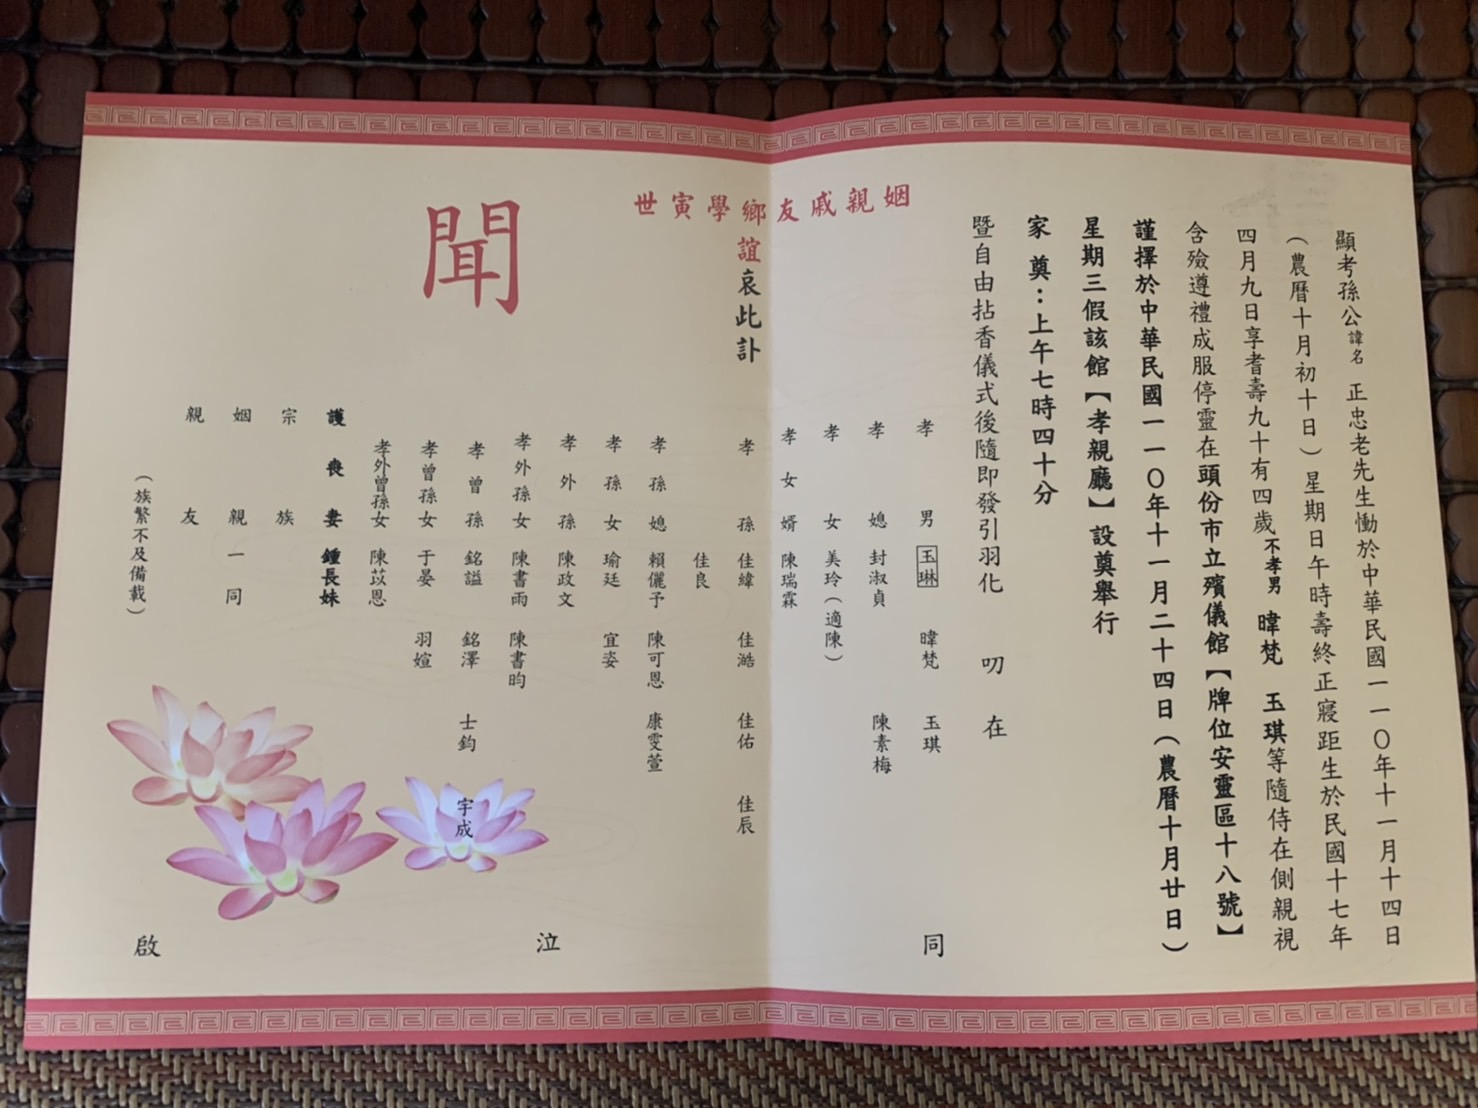 顯考孫公諱名正忠老先生慟於中華民國一一〇年十一月十四日
（農曆十月初十日）星期日午時壽終正寢距生於民國十七年
四月九日享耆壽九十有四歲不孝男 暐梵 玉琪等隨侍在側親視
含殮遵禮成服停靈在頭份市立殯儀館【牌位安靈區十八號】
謹擇於中華民國一一〇年十一月二十四日（農曆十月廿日）
星期三假該館【孝親廳】設奠舉行
家奠：上午七時四十分
暨自由拈香儀式後隨即發引羽化 叨在
姻親戚友鄉學寅世
誼哀此訃
聞
孝男 玉琳 暐梵 玉琪 同
孝媳 封淑貞 陳素梅
孝女 美玲（適陳）
孝女婿 陳瑞霖
孝孫 佳緯 佳澔 佳佑 佳辰
佳良
孝孫媳 賴儷予 陳可恩 康雯萱
孝孫女 瑜廷 宜姿
孝外孫 陳政文 泣
孝外孫女 陳書雨 陳書昀
孝曾孫 銘謚 銘澤 士鈞 宇成
孝曾孫女 于晏 羽媗
孝外曾孫女 陳苡恩
護喪妻 鍾長妹
宗族
姻親一同
親友
（族繁不及備載） 啟